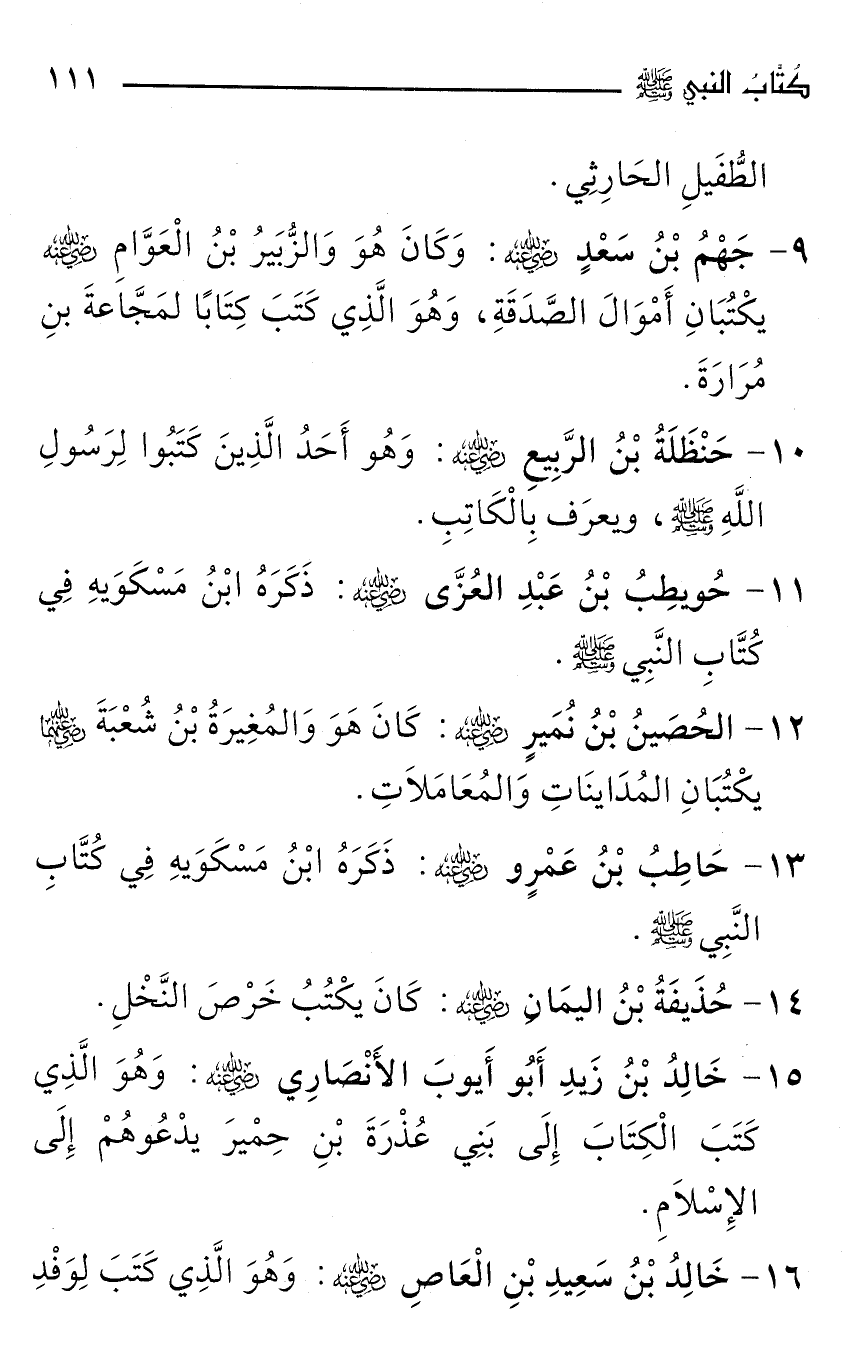 كُتَّابُ النبي ﷺ ١١١
الطُّفَيلِ الحَارِثِي .
٩- جَهْمُ بْنُ سَعْدٍ رضي الله عنه : وَكَانَ هُوَ وَالزُّبَيرُ بْنُ الْعَوَّامِ رضي الله عنه
يكْتُبَانِ أَمْوَالَ الصَّدَقَةِ، وَهُوَ الَّذِي كَتَبَ كِتَابًا لمَجَّاعةَ بنِ
مُرَارَةَ .
١٠- حَنْظَلَةُ بْنُ الرَّبِيعِ رضي الله عنه : وَهُو أَحَدُ الَّذِينَ كَتَبُوا لِرَسُولِ
اللَّهِ ﷺ ، ويعرَف بِالْكَاتِبِ .
١١- حُويطِبُ بْنُ عَبْدِ العُزَّى رضي الله عنه : ذَكَرَهُ ابْنُ مَسْكَوَيهِ فِي
كُتَّابِ النَّبِي ﷺ .
١٢- الحُصَينُ بْنُ نُمَيرٍ رضي الله عنه : كَانَ هَوَ وَالمُغِيرَةُ بْنُ شُعْبَةَ رضي الله عنهما
يكْتُبَانِ المُدَاينَاتِ وَالمُعَامَلاَتِ .
١٣- حَاطِبُ بْنُ عَمْرٍو رضي الله عنه : ذَكَرَهُ ابْنُ مَسْكَوَيهِ فِي كُتَّابِ
النَّبِي ﷺ .
١٤- حُذَيفَةُ بْنُ اليمَانِ رضي الله عنه : كَانَ يكْتُبُ خَرْصَ النَّخْلِ .
١٥- خَالِدُ بْنُ زَيدِ أَبُو أَيوبَ الأَنْصَارِي رضي الله عنه : وَهُوَ الَّذِي
كَتَبَ الْكِتَابَ إِلَى بَنِي عُذْرَةَ بْنِ حِمْيرَ يدْعُوهُمْ إِلَى
الإِسْلاَمِ .
١٦- خَالِدُ بْنُ سَعِيدِ بْنِ الْعَاصِ رضي الله عنه : وَهُوَ الَّذِي كَتَبَ لِوَفْدِ